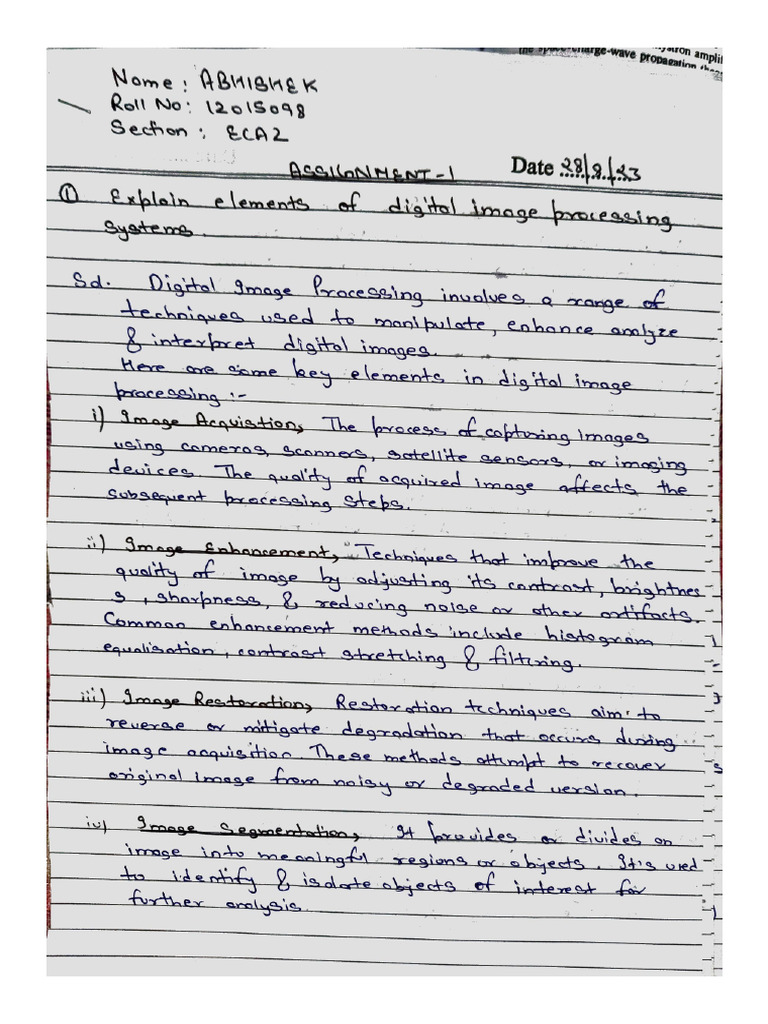 the space-charge-wave propagation
Name: ABHISHEK
Roll No: 12015098
Section: ECA2
ASSIGNMENT-1
Date 28/8/23
① Explain elements of digital image processing
systems.
Sol. Digital Image Processing involves a range of
techniques used to manipulate, enhance analyze
& interpret digital images.
Here are some key elements in digital image
processing :-
i) Image Acquistion, The process of capturing images
using cameras, scanners, satellite sensors, or imaging
devices. The quality of acquired image affects the
subsequent processing steps.
ii) Image Enhancement, Techniques that improve the
quality of image by adjusting its contrast, brightnes
s, sharpness, & reducing noise or other artifacts.
Common enhancement methods include histogram
equalisation, contrast stretching & filtering.
iii) Image Restoration, Restoration techniques aim to
reverse or mitigate degradation that occurs during
image acquisition. These methods attempt to recover
original image from noisy or degraded version.
iv) Image Segmentation, It provides or divides an
image into meaningful regions or objects. It's used
to identify & isolate objects of interest for
further analysis.